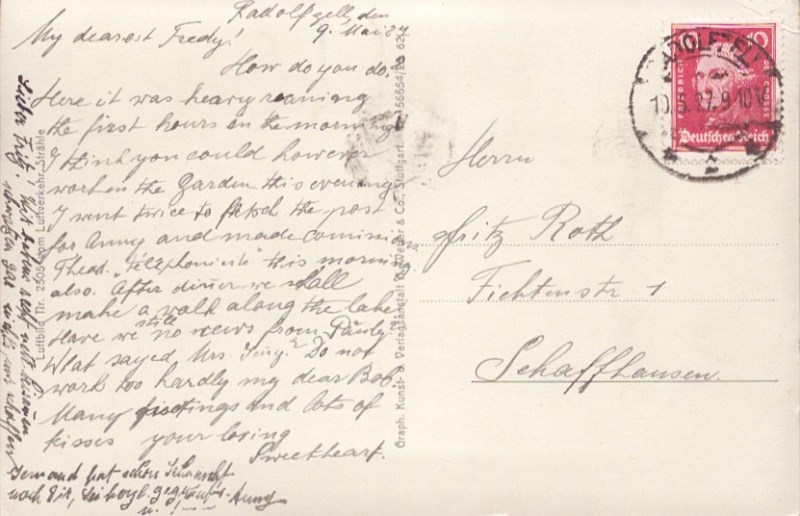 Radolfzell, den
9. Mai 27
My dearest Fredy!
How do you do?
Here it was heavy reaning
the first hours on the morning!
I think you could however
work in the Garden this evening
I went twice to fetsch the post
for Anny and made comissions
I had "telephoniert" this morning
also. After dinner we shall
make a walk along the lake
Have we still no news from Pauly?
What sayed Mrs. Jenny? Do not
work too hardly my dear Bob.
Many greetings and lots of
kisses your loving
Sweetheart.
Jemand hat schon Sehnsucht
nach Dir, Sei herzl. gegrüsst Anny
Lieber Fritz!
Luftbild Nr. 2505 vom Luftverkehr Strähle
Graph. Kunst- & Verlagsanstalt Weber & Co., Stuttgart.
RADOLFZELL
10.5.27. 9-10V.
10 10
FRIEDRICH
Deutsches Reich
Herrn
Fritz Roth
Fichtenstr 1
Schaffhausen.